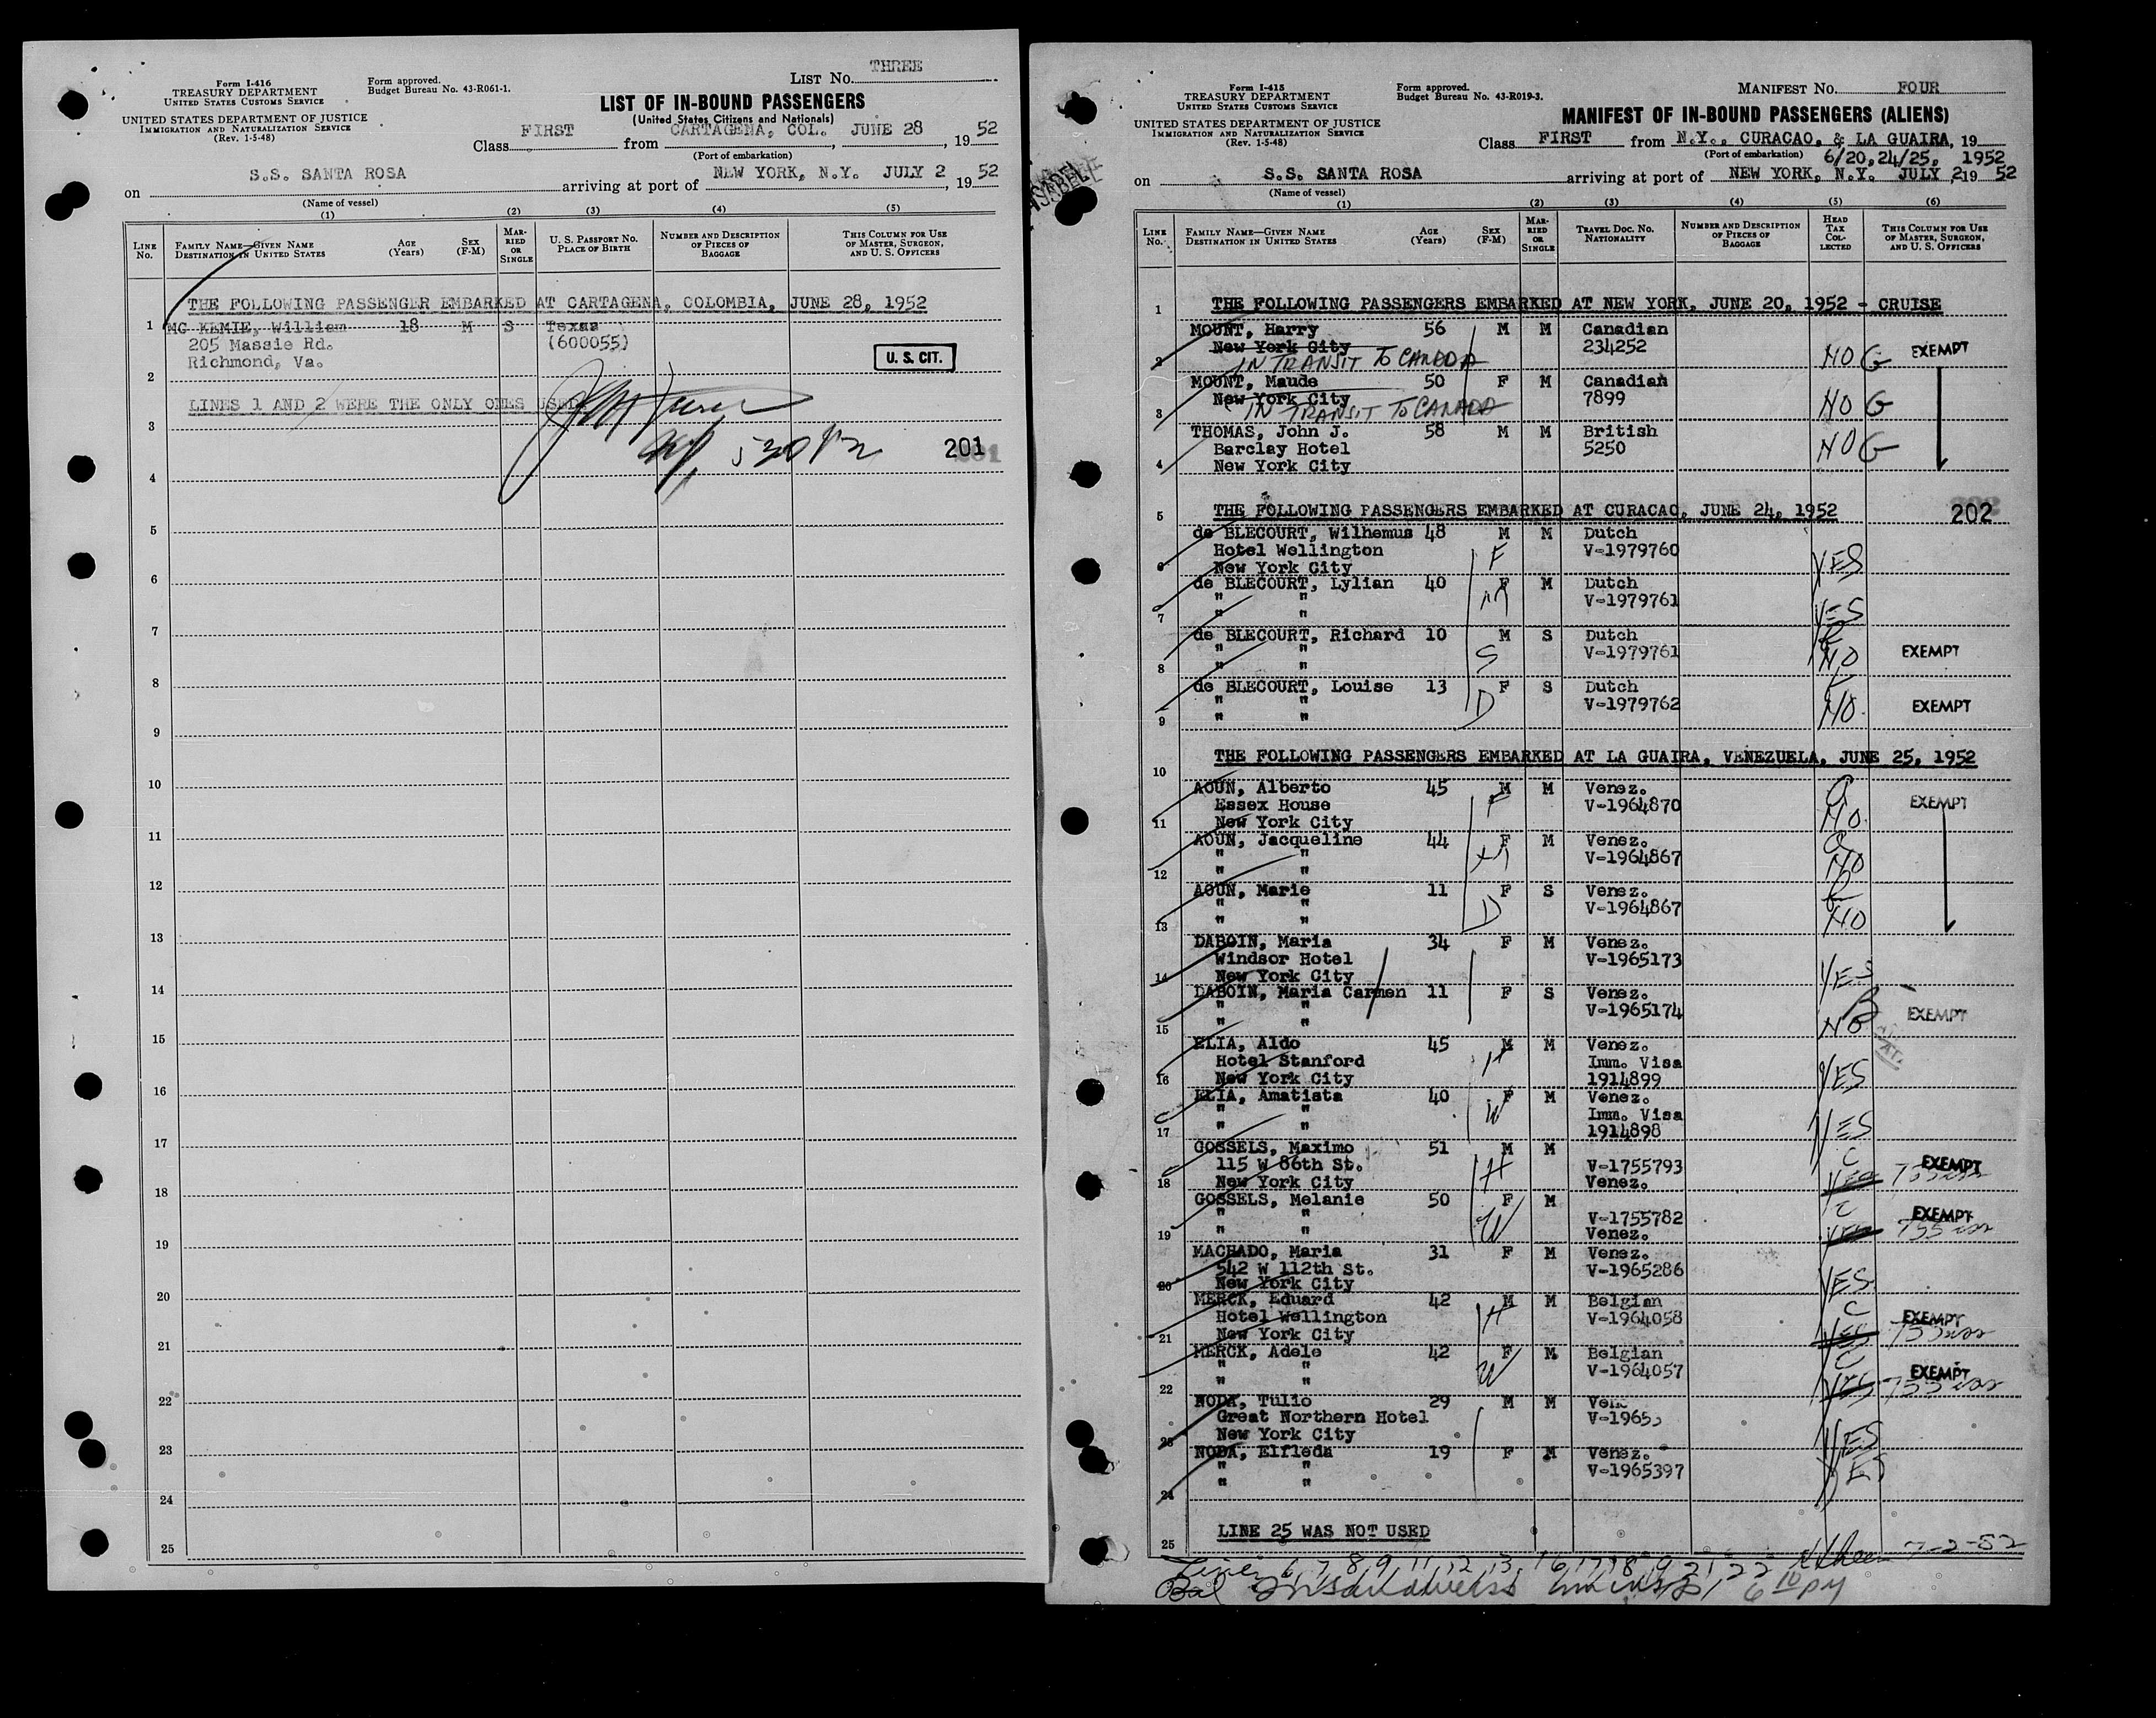 Form I-416
TREASURY DEPARTMENT
UNITED STATES CUSTOMS SERVICE
UNITED STATES DEPARTMENT OF JUSTICE
IMMIGRATION AND NATURALIZATION SERVICE
(Rev. 1-5-48)
Form approved.
Budget Bureau No. 43-R061-1.
LIST NO. THREE
LIST OF IN-BOUND PASSENGERS
(United States Citizens and Nationals)
Class FIRST from CARTAGENA, COL. JUNE 28, 1952
(Port of embarkation)
on S.S. SANTA ROSA arriving at port of NEW YORK, N.Y. JULY 2, 1952
(Name of vessel)
(1) (2) (3) (4) (5)
LINE No. FAMILY NAME—GIVEN NAME DESTINATION IN UNITED STATES AGE (Years) SEX (F-M) MARRIED OR SINGLE U. S. PASSPORT NO. PLACE OF BIRTH NUMBER AND DESCRIPTION OF PIECES OF BAGGAGE THIS COLUMN FOR USE OF MASTER, SURGEON, AND U. S. OFFICERS
THE FOLLOWING PASSENGER EMBARKED AT CARTAGENA, COLOMBIA, JUNE 28, 1952
1 MC KEMIE, William 18 M S Texas
205 Massie Rd. (600055)
Richmond, Va. U. S. CIT.
2
LINES 1 AND 2 WERE THE ONLY ONES USED
3
201
4
5
6
7
8
9
10
11
12
13
14
15
16
17
18
19
20
21
22
23
24
25
Form I-415
TREASURY DEPARTMENT
UNITED STATES CUSTOMS SERVICE
UNITED STATES DEPARTMENT OF JUSTICE
IMMIGRATION AND NATURALIZATION SERVICE
(Rev. 1-5-48)
Form approved.
Budget Bureau No. 43-R019-3.
MANIFEST NO. FOUR
MANIFEST OF IN-BOUND PASSENGERS (ALIENS)
Class FIRST from N.Y., CURACAO, & LA GUAIRA, 19
(Port of embarkation) 6/20,24/25, 1952
on S.S. SANTA ROSA arriving at port of NEW YORK, N.Y. JULY 2, 1952
(Name of vessel)
(1) (2) (3) (4) (5) (6)
LINE No. FAMILY NAME—GIVEN NAME DESTINATION IN UNITED STATES AGE (Years) SEX (F-M) MARRIED OR SINGLE TRAVEL DOC. NO. NATIONALITY NUMBER AND DESCRIPTION OF PIECES OF BAGGAGE HEAD TAX COLLECTED THIS COLUMN FOR USE OF MASTER, SURGEON, AND U. S. OFFICERS
1 THE FOLLOWING PASSENGERS EMBARKED AT NEW YORK, JUNE 20, 1952 - CRUISE
MOUNT, Harry 56 M M Canadian
New York City 234252
2 IN TRANSIT TO CANADA NO G EXEMPT
MOUNT, Maude 50 F M Canadian
New York City 7899
3 IN TRANSIT TO CANADA NO G
THOMAS, John J. 58 M M British
Barclay Hotel 5250 NO G
4 New York City
5 THE FOLLOWING PASSENGERS EMBARKED AT CURACAO, JUNE 24, 1952 202
de BLECOURT, Wilhemus 48 M M Dutch
Hotel Wellington F V-1979760 YES
6 New York City
de BLECOURT, Lylian 40 F M Dutch
" " M V-1979761 YES
7 " "
de BLECOURT, Richard 10 M S Dutch
" " S V-1979761 NO EXEMPT
8 " "
de BLECOURT, Louise 13 F S Dutch
" " D V-1979762 NO EXEMPT
9 " "
10 THE FOLLOWING PASSENGERS EMBARKED AT LA GUAIRA, VENEZUELA, JUNE 25, 1952
AOUN, Alberto 45 M M Venez.
Essex House F V-1964870 EXEMPT
11 New York City NO
AOUN, Jacqueline 44 F M Venez.
" " M V-1964867 NO
12 " "
AOUN, Marie 11 F S Venez.
" " D V-1964867 NO
13 " "
DABOIN, Maria 34 F M Venez.
Windsor Hotel V-1965173
14 New York City YES
DABOIN, Maria Carmen 11 F S Venez.
" " V-1965174 EXEMPT
15 " " NO
ELIA, Aldo 45 M M Venez.
Hotel Stanford H Imm. Visa
16 New York City 1914899 YES
ELIA, Amatista 40 F M Venez.
" " W Imm. Visa
17 " " 1914898 YES
GOSSELS, Maximo 51 M M
115 W 86th St. H V-1755793 C EXEMPT
18 New York City Venez. YES
GOSSELS, Melanie 50 F M
" " W V-1755782 C EXEMPT
19 " " Venez. YES
MACHADO, Maria 31 F M Venez.
542 W 112th St. V-1965286
20 New York City YES
MERCK, Eduard 42 M M Belgian
Hotel Wellington H V-1964058 C EXEMPT
21 New York City YES
MERCK, Adele 42 F M Belgian
" " W V-1964057 C EXEMPT
22 " " YES
NODA, Tulio 29 M M
Great Northern Hotel V-1965
23 New York City YES
NODA, Elfleda 19 F M Venez.
" " V-1965397 YES
24 " "
25 LINE 25 WAS NOT USED
Lines 6, 7, 8, 9, 11, 12, 13, 16, 17, 18, 19, 21, 22 7-2-52